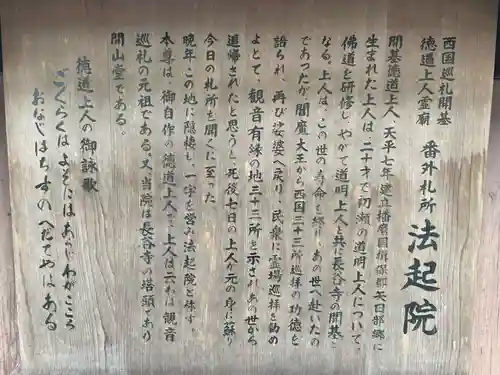 西国巡礼開基
徳道上人霊廟
番外札所 法起院
開基徳道上人、天平七年建立播磨国揖保郡矢田部郷に
生まれた上人は二十才で初瀬の道明上人について、
佛道を研修し、やがて道明上人と共に長谷寺の開基と
なる。上人は、この世の寿命を終りあの世へ赴いたの
であったが、閻魔大王から西国三十三所巡拝の功徳を
語られ、再び娑婆へ戻り、民衆に霊場巡拝を勧め
よとて、観音有縁の地三十三所を示されあの世から
追帰されたと思うと、死後七日の上人が元の身に蘇り
今日の札所を開くに至った
晩年この地に隠棲も、一宇を営み法起院と称す
本尊は、御自作の徳道上人で、上人は云わば観音
巡礼の元祖である。又、当院は長谷寺の塔頭であり
開山堂である。
徳道上人の御詠歌
ごくらくはよそにはあらじわがこころ
おなじはちすのへだてやはある